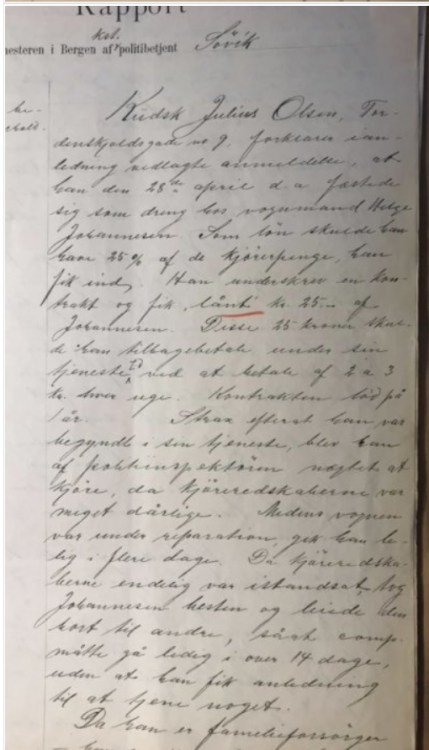 Rapport
kst.
mesteren i Bergen af politibetjent Sövik
Kudsk Julius Olsen, Tor-
denskjoldsgade no 9, forklarer i an-
ledning vedlagte anmeldelse, at
han den 28de april d.a. fæstede
sig som dreng hos vognmand Helge
Johannesen. Som lön skulde han
have 25% af de kjörerpenge, han
fik ind. Han underskrev en kon-
trakt og fik "lånt" kr. 25.- af
Johannesen. Disse 25 kroner skul-
de han tilbagebetale under sin
tjeneste ved at betale af 2 a 3
kr. hver uge. Kontrakten löd på
1 år. Strax efterat han var
begyndt i sin tjeneste, blev han
af politiinspektören nægtet at
kjöre, da kjöreredskaberne var
meget dårlige. Medens vognen
var under reparation, gik han le-
dig i flere dage. Da kjöreredska-
berne endelig var istandsat, tog
Johannesen hesten og leiede den
bort til andre, såat comp.
måtte gå ledig i over 14 dage,
uden at han fik anledning
til at tjene noget.
Da han er familieforsörger